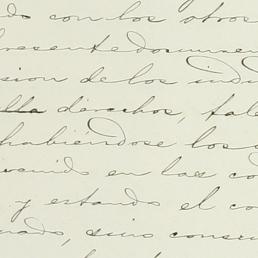 do con los otros
presente documen
sion de los indi
alla derechos, tale
habiéndose los
venido en las co
y estando el co
nado, sino conser